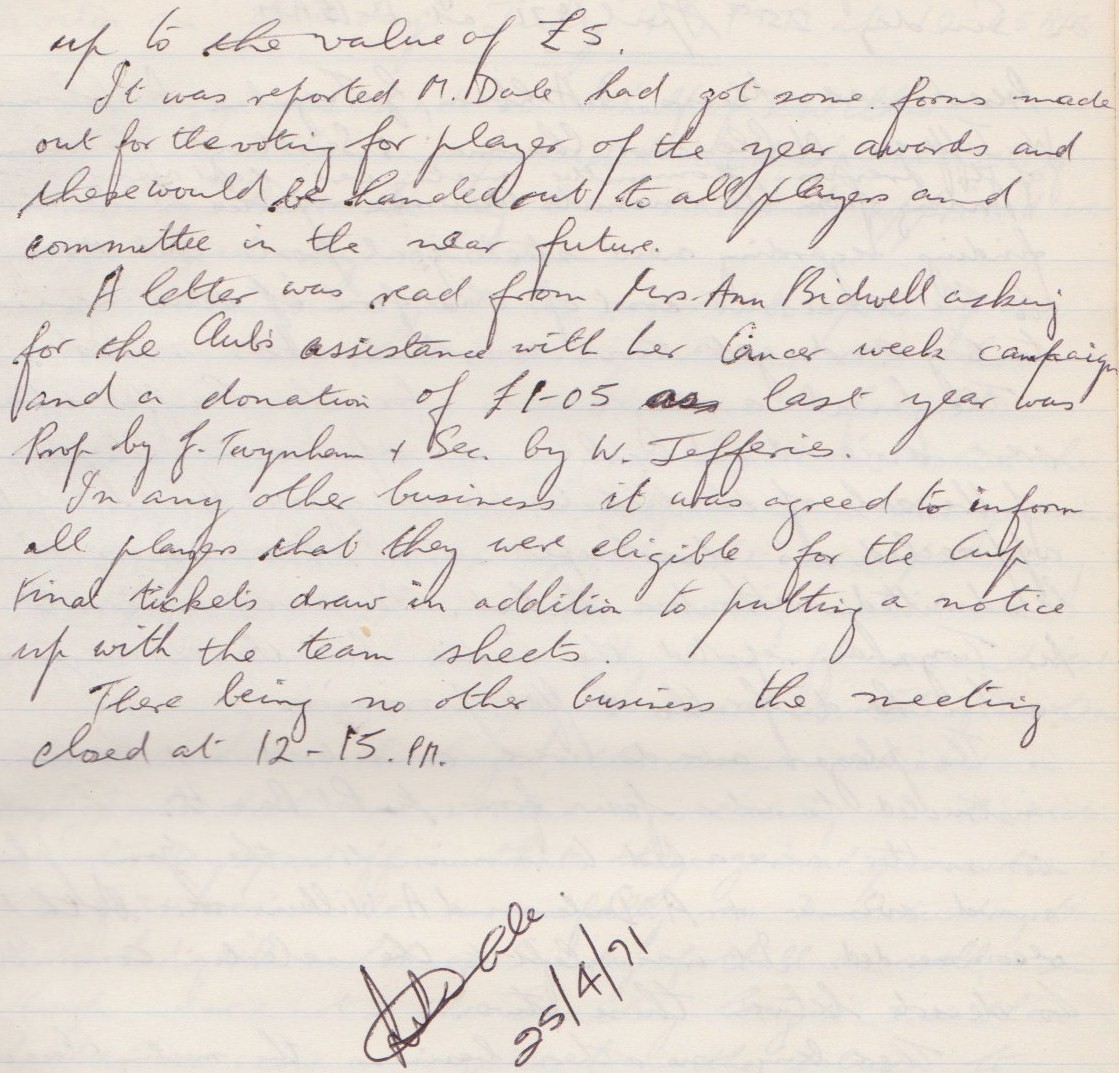 up to the value of £5.
It was reported M. Dale had got some forms made
out for the voting for player of the year awards and
these would be handed out to all players and
committee in the near future.
A letter was read from Mrs. Ann Bidwell asking
for the Club's assistance with her Cancer week campaign
and a donation of £1-05 as last year was
Prop by J. Twynham + Sec. by W. Jefferies.
In any other business it was agreed to inform
all players that they were eligible for the Cup
Final tickets draw in addition to putting a notice
up with the team sheets.
There being no other business the meeting
closed at 12-15. PM.
Dale
25/4/71